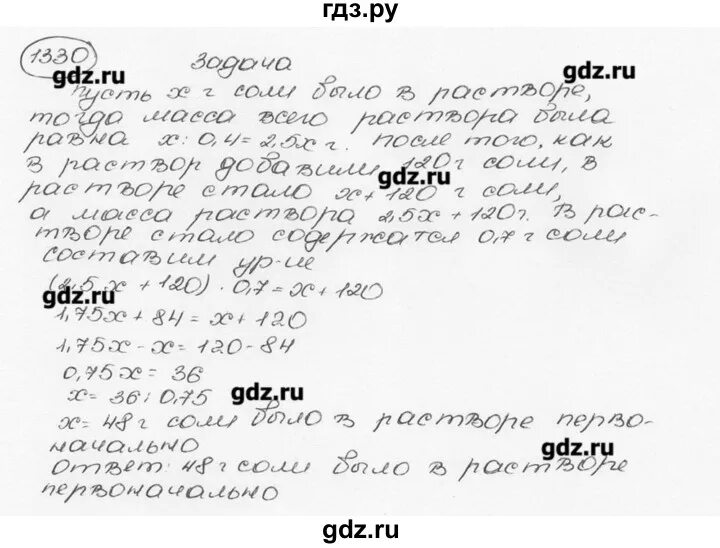 гдз.ру
1330 задача
gdz.ru gdz.ru
Пусть x г соли было в растворе,
тогда масса всего раствора была
равна x : 0,4 = 2,5x г. После того, как
в раствор добавили 120 г соли, в
gdz.ru
растворе стало x + 120 г соли,
а масса раствора 2,5x + 120 г. В рас-
творе стало содержатся 0,7 г соли
составим ур-ие
(2,5x + 120) · 0,7 = x + 120
gdz.ru
1,75x + 84 = x + 120
1,75x - x = 120 - 84
0,75x = 36
x = 36 : 0,75
gdz.ru
x = 48 г соли было в растворе перво-
начально
gdz.ru
Ответ: 48 г соли было в растворе
первоначально
gdz.ru